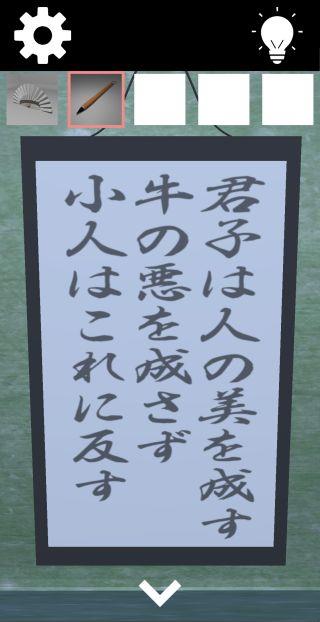 君子は人の美を成す
牛の悪を成さず
小人はこれに反す